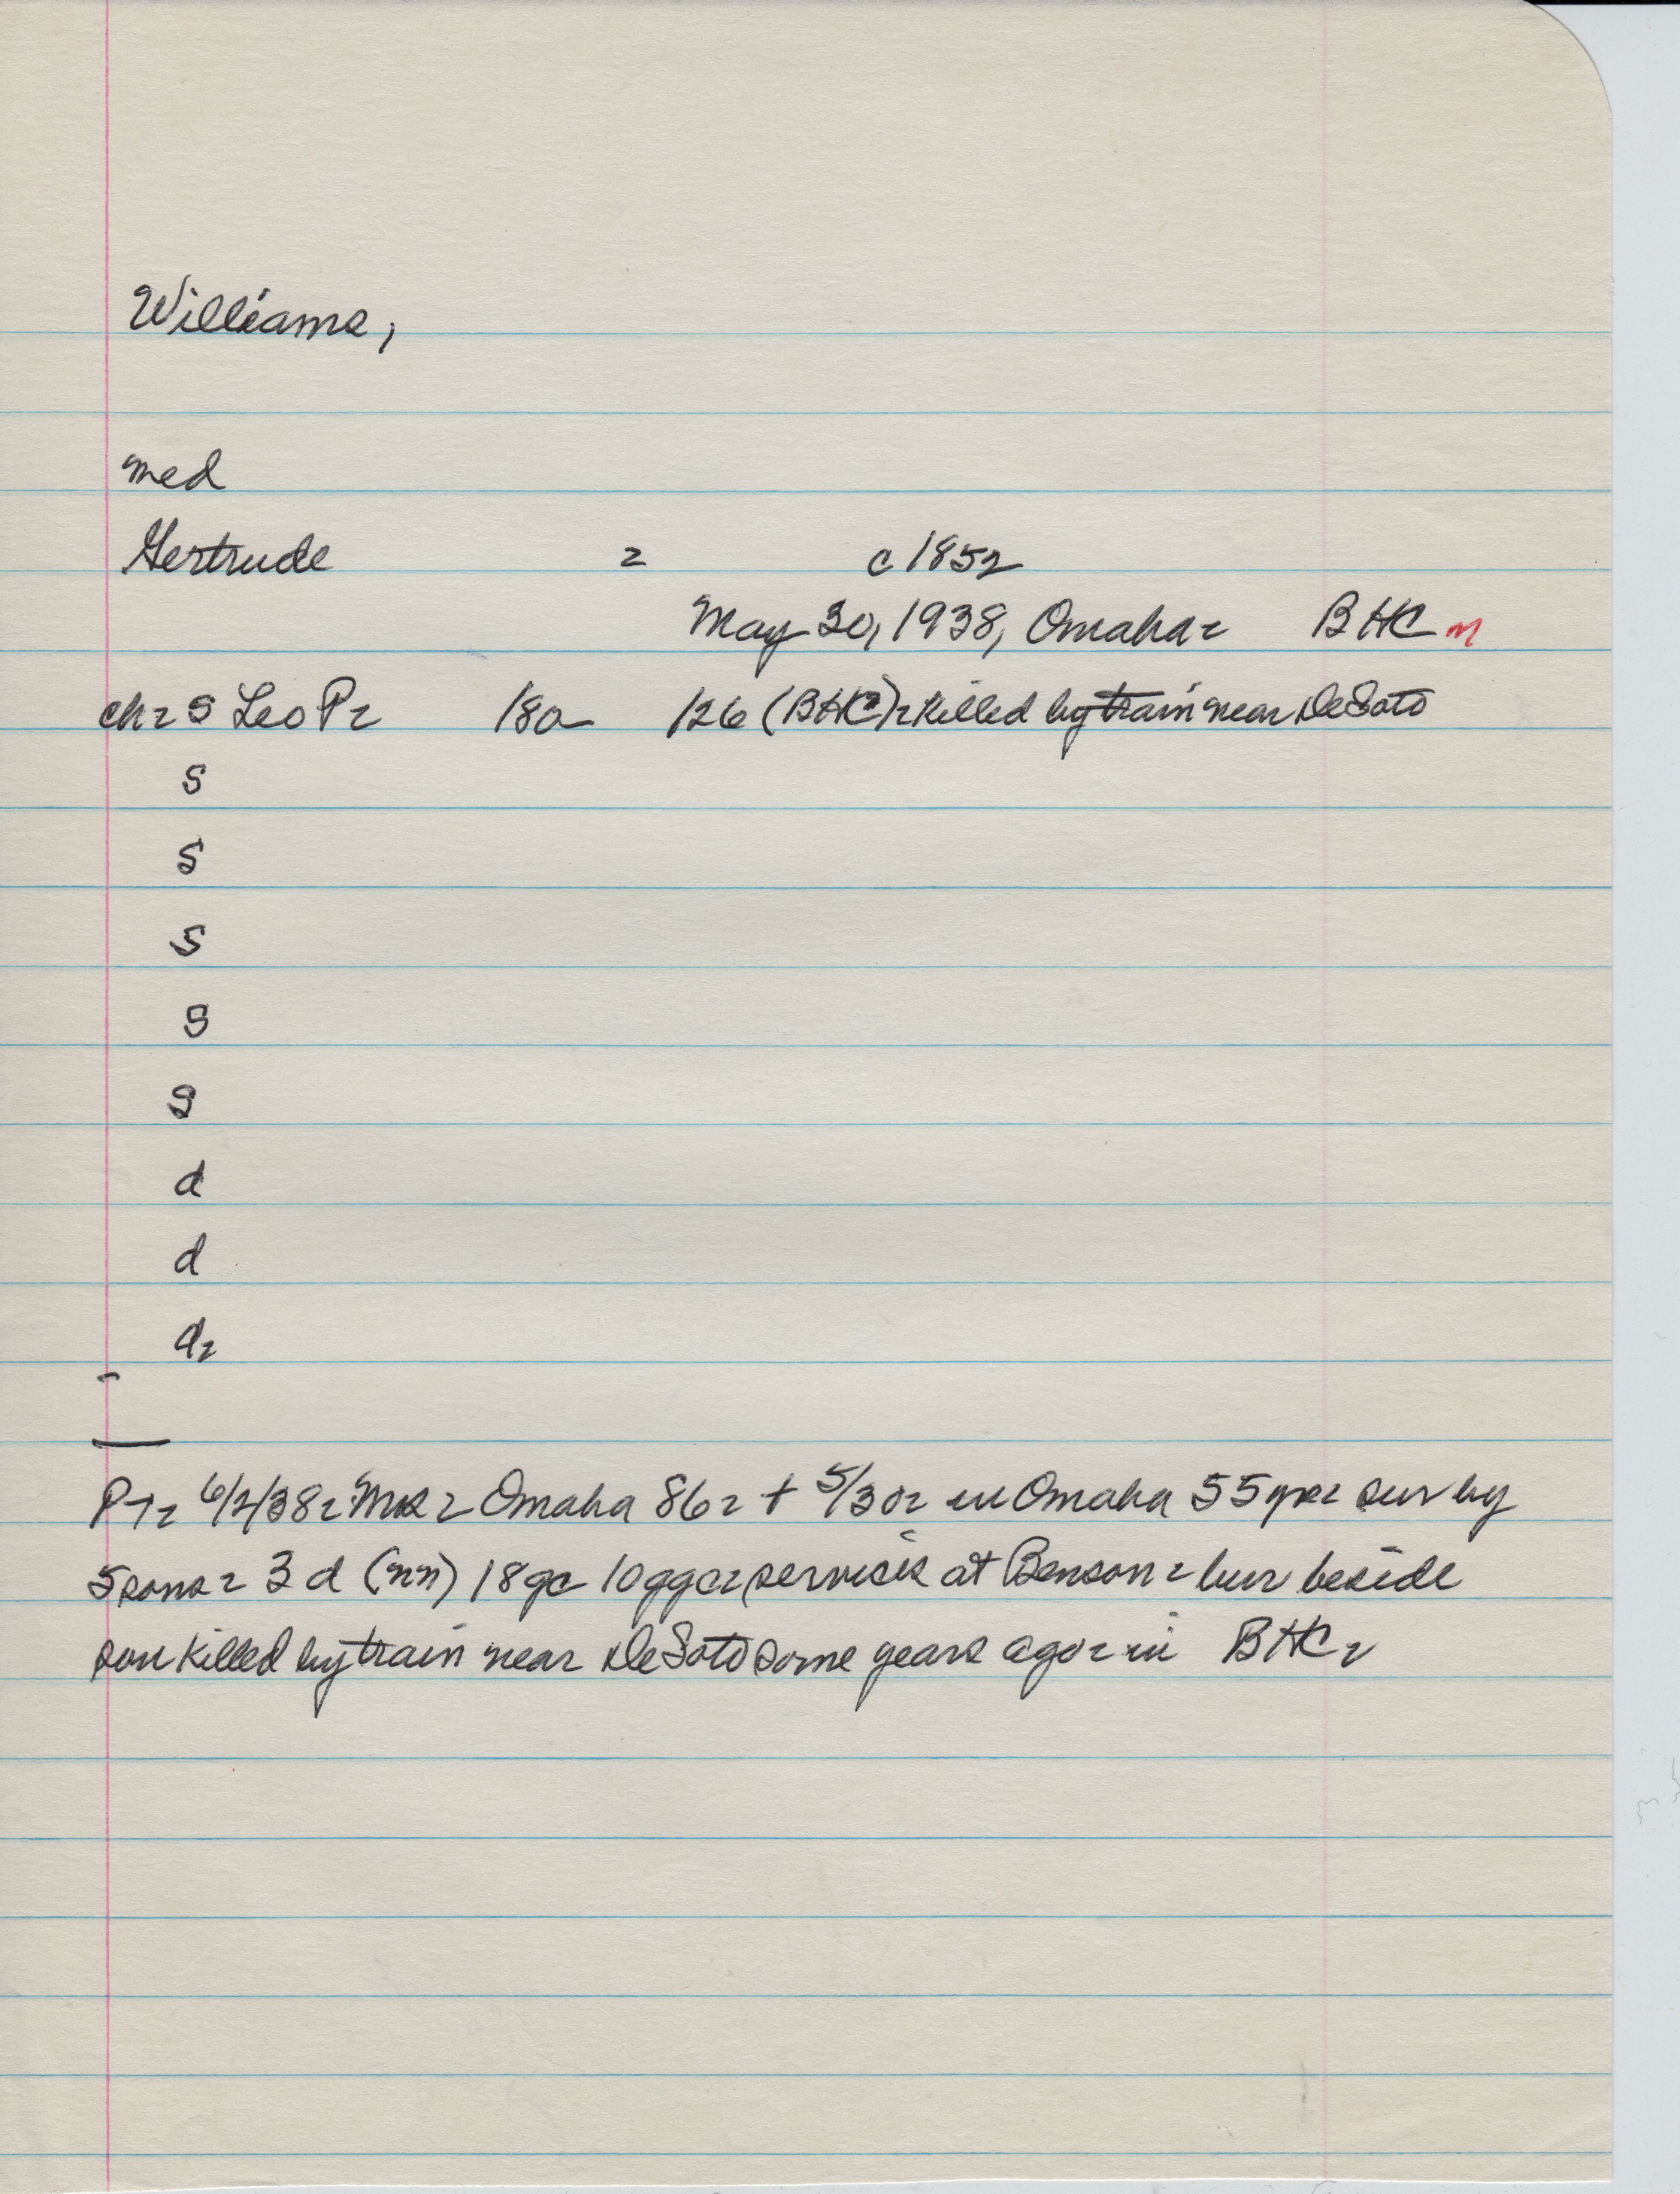 Williams,
med
Gertrude = c 1852
May 30, 1938, Omaha = BHC n
ch = S Leo P = /80 /26 (BHC) = killed by train near DeSoto
S
S
S
S
S
d
d
d =
-
—
PT = 6/2/38 = Mrs = Omaha 86 = + 5/30 = in Omaha 55 yrs = sur by
5 sons = 3 d (nn) 18 gc 10 ggc = services at Benson = bur beside
son killed by train near DeSoto some years ago = in BHC =